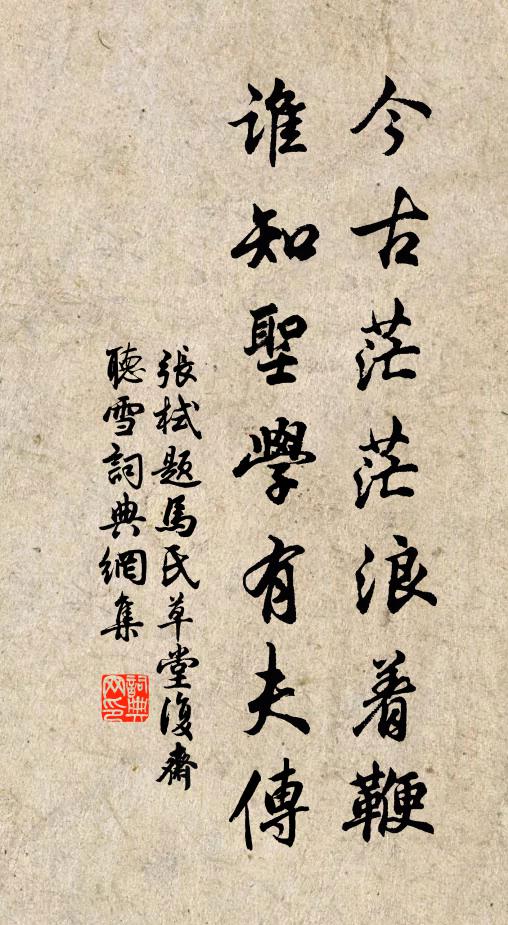 今古茫茫浪着鞭
誰知聖學有夫傳
張栻題馬氏草堂復齋
聽雪詞典網集
詞典網印